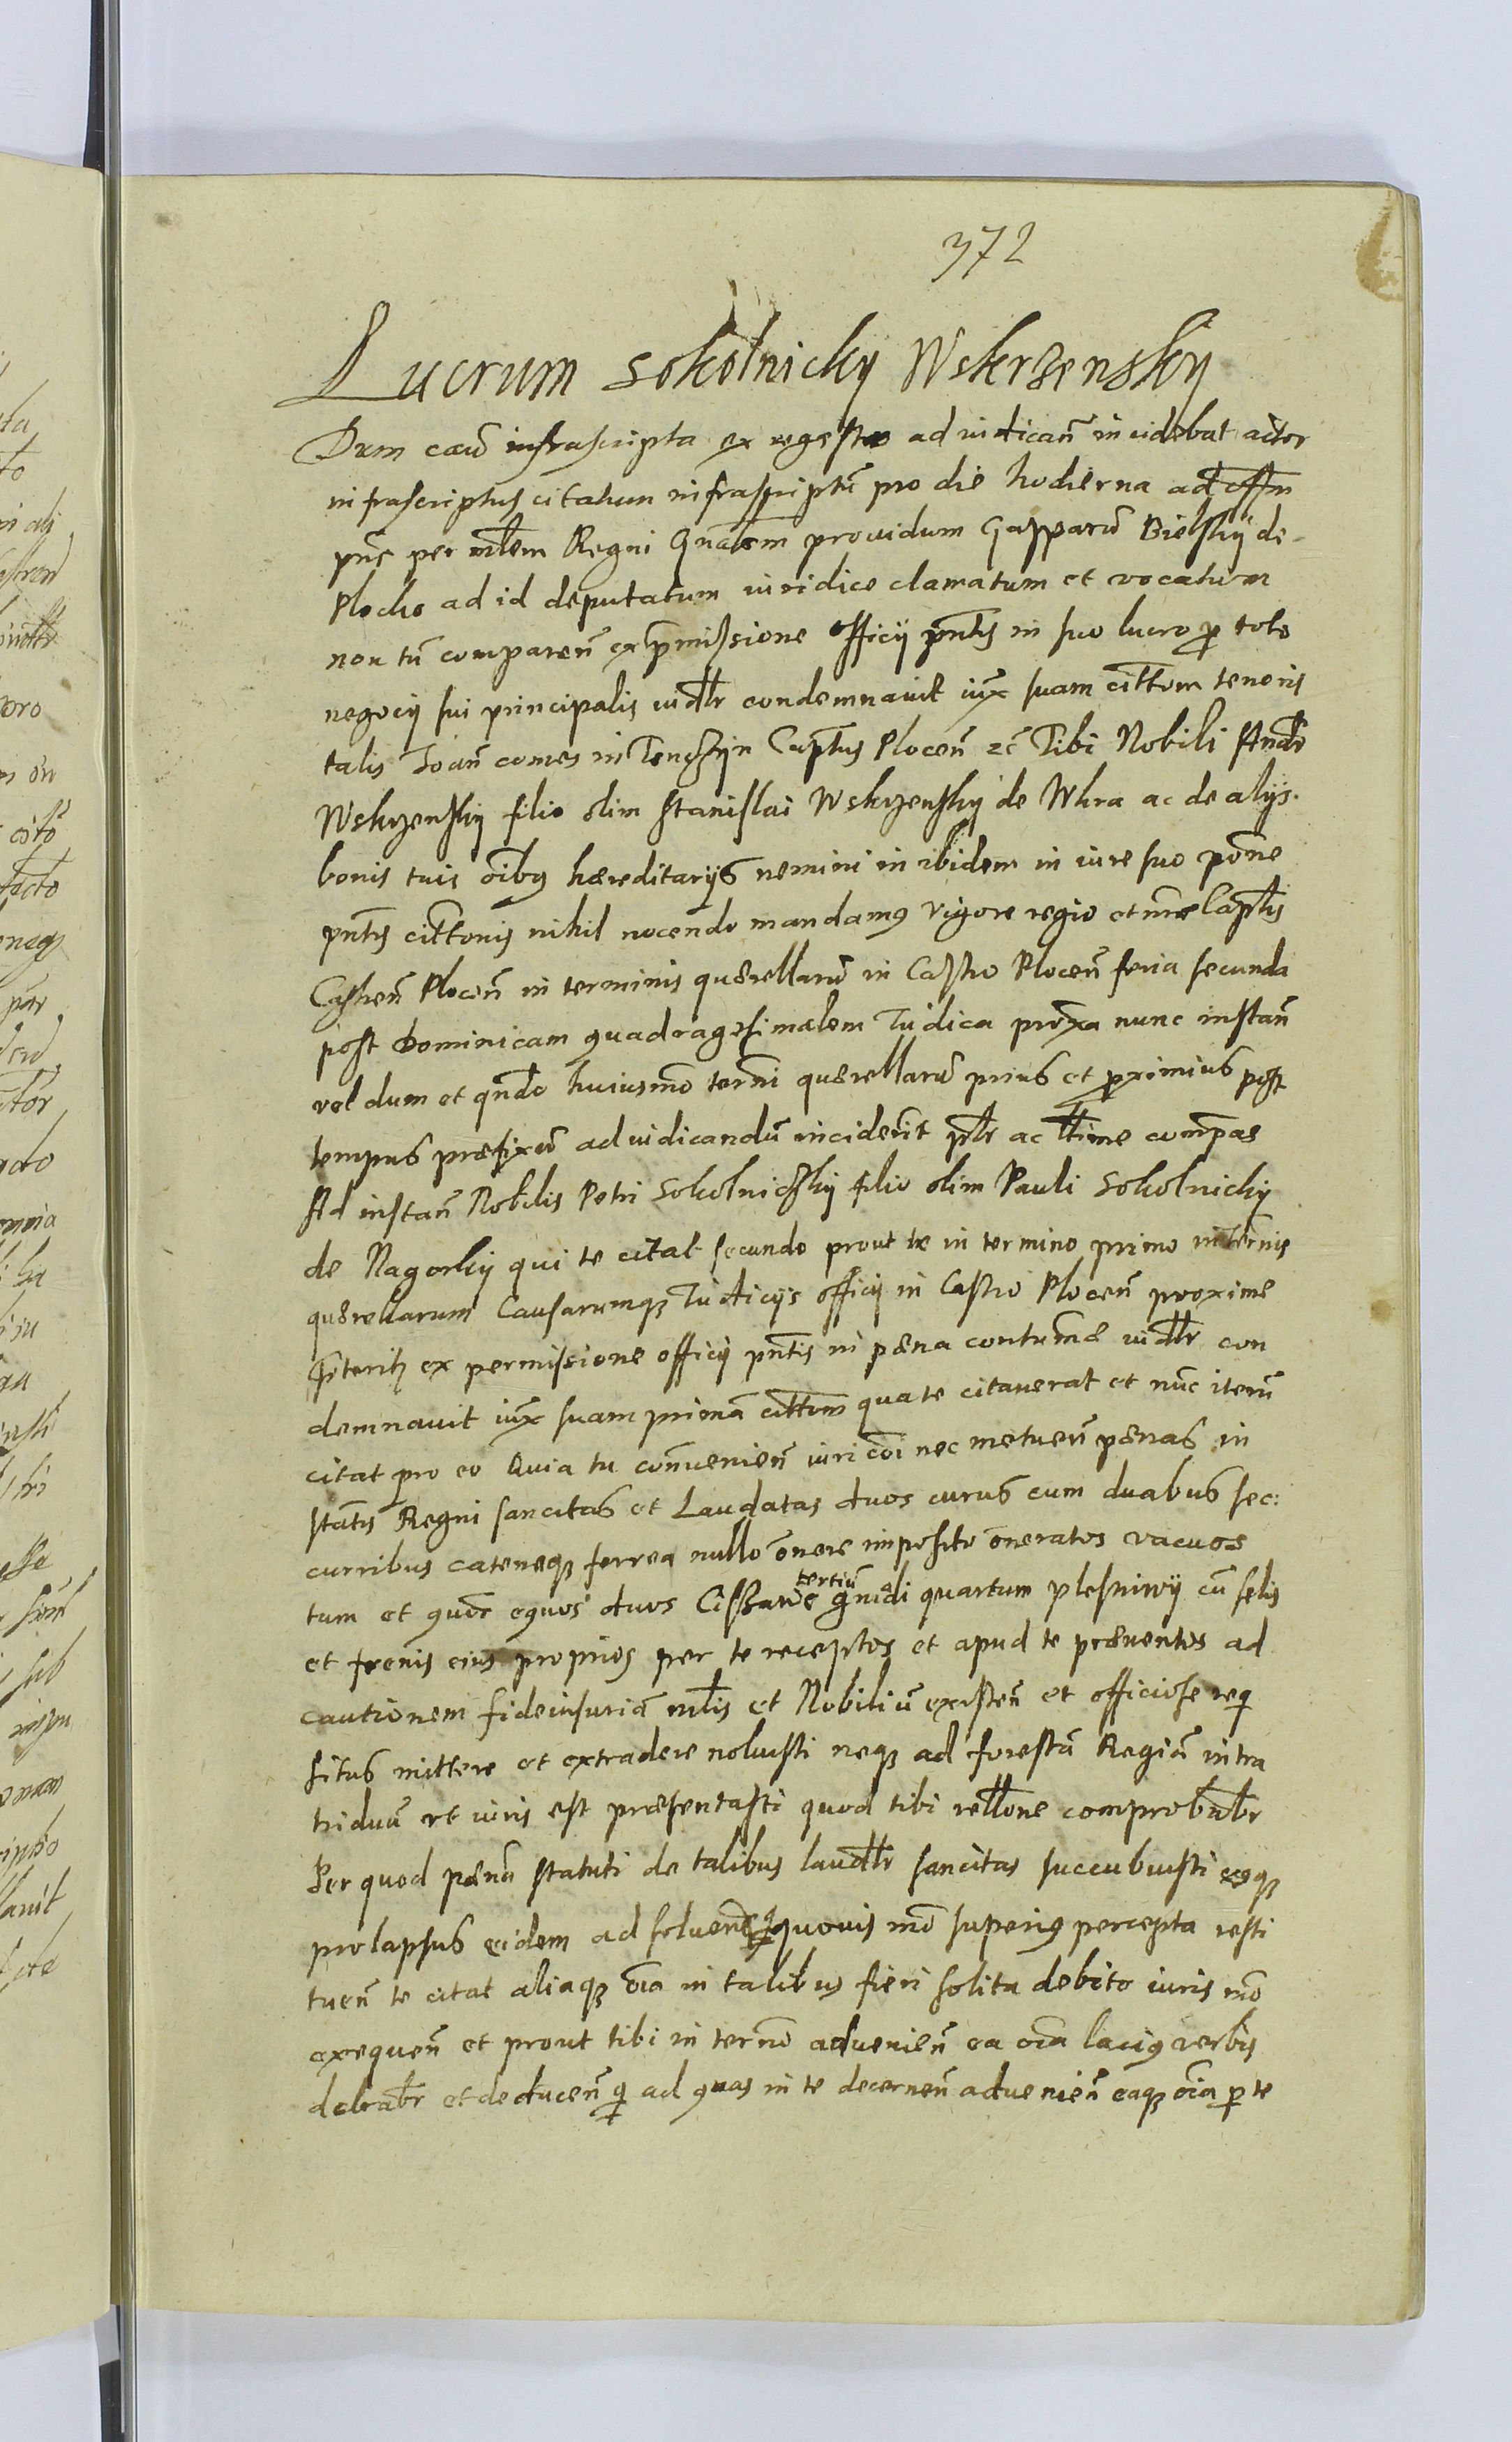 372
Lucrum Sokolnicky Wskrzensky
Dum cau͞ infrascripta ex regestro ad iudican͞ incidebat actor
infrascriptus citatum infrascriptu͞ pro die hodierna ad
pn͞s per mlem Regni Gn͞alem prouidum Gasparu͞ Bielskij de
Plocko ad id deputatum iuridice clamatum et vocatum
non tn͞ comparen͞ ex pmissione officij pn͞tis in suo lucro p toto
negocij sui principalis iudlr condemnauit iux͞ suam citt͞om tenoris
talis Joan͞ comes in Tenczijn Capt͞us Plocen͞ zc͞ Tibi Nobili Andr
Wskrzenskij filio olim Stanislai Wskrzenskij de Wkra ac de alijs
bonis tuis oi͞bus hæreditarijs nemini in ibidem in iure suo pone
pn͞tis citt͞onis nihil nocendo mandamus vigore regio et capt͞lis
Castren͞ Plocen͞ in terminis quærellaru͞ in Castro Plocen͞ feria secunda
post Dominicam quadragesimalem Judica proxa nunc instan͞
vel dum et qn͞do huiusmo͞ termi͞ quærellaru͞ prius et proximius post
tempus præfixu͞ ad iudicandu͞ inciderit plr ac ltt͞ime compas
Ad instan͞ Nobilis Petri Sokolnickij filio olim Pauli Sokolnicky
de Nagorkij qui te citat secundo prout te in termino primo in ter͞nis
quærellarum Causarumq; Judicijs officij in Castro Plocen͞ proxime
pteritis ex permissione officij pn͞tis in pæna contumæ iudlr con
demnauit iux͞ suam primā citt͞om qua te citauerat et nu͞c iteru͞
citat pro eo Quia tu con͞uenien͞ iuri co͞i nec metuen͞ pænas in
stat͞is Regni sancitas et Laudatas duos currus cum duabus sec:
curribus cateneq; ferrea nullo onere imposito oneratos vacuos
tum et quor͞ equos duos Cissawe tertiu͞ gniadi quartum plesniwij cu͞ selis
et frenis eius proprios per te receptos et apud te præuentos ad
cautionem fideiusuriā mlis et Nobiliu͞ existen͞ et officiose requi
situs mittere et extradere noluisti neq; ad forestā Regiā intra
triduu͞ vt iuris est præsentasti quod tibi rell͞one comprobablr
Per quod pænā statuti de talibus laudlr sancitas succubuisti easq;
prolapsus eidem ad soluend quouis mo͞ superius percepta resti
tuen͞ te citat aliaq; oi͞a in talibus fieri solita debito iuris mo͞
exequen͞ et prout tibi in termo͞ aduenien͞ ea oi͞a lacius verbis
dclrablr et deducen͞ ad quas in te decernen͞ aduenien͞ eaq; oi͞a p te